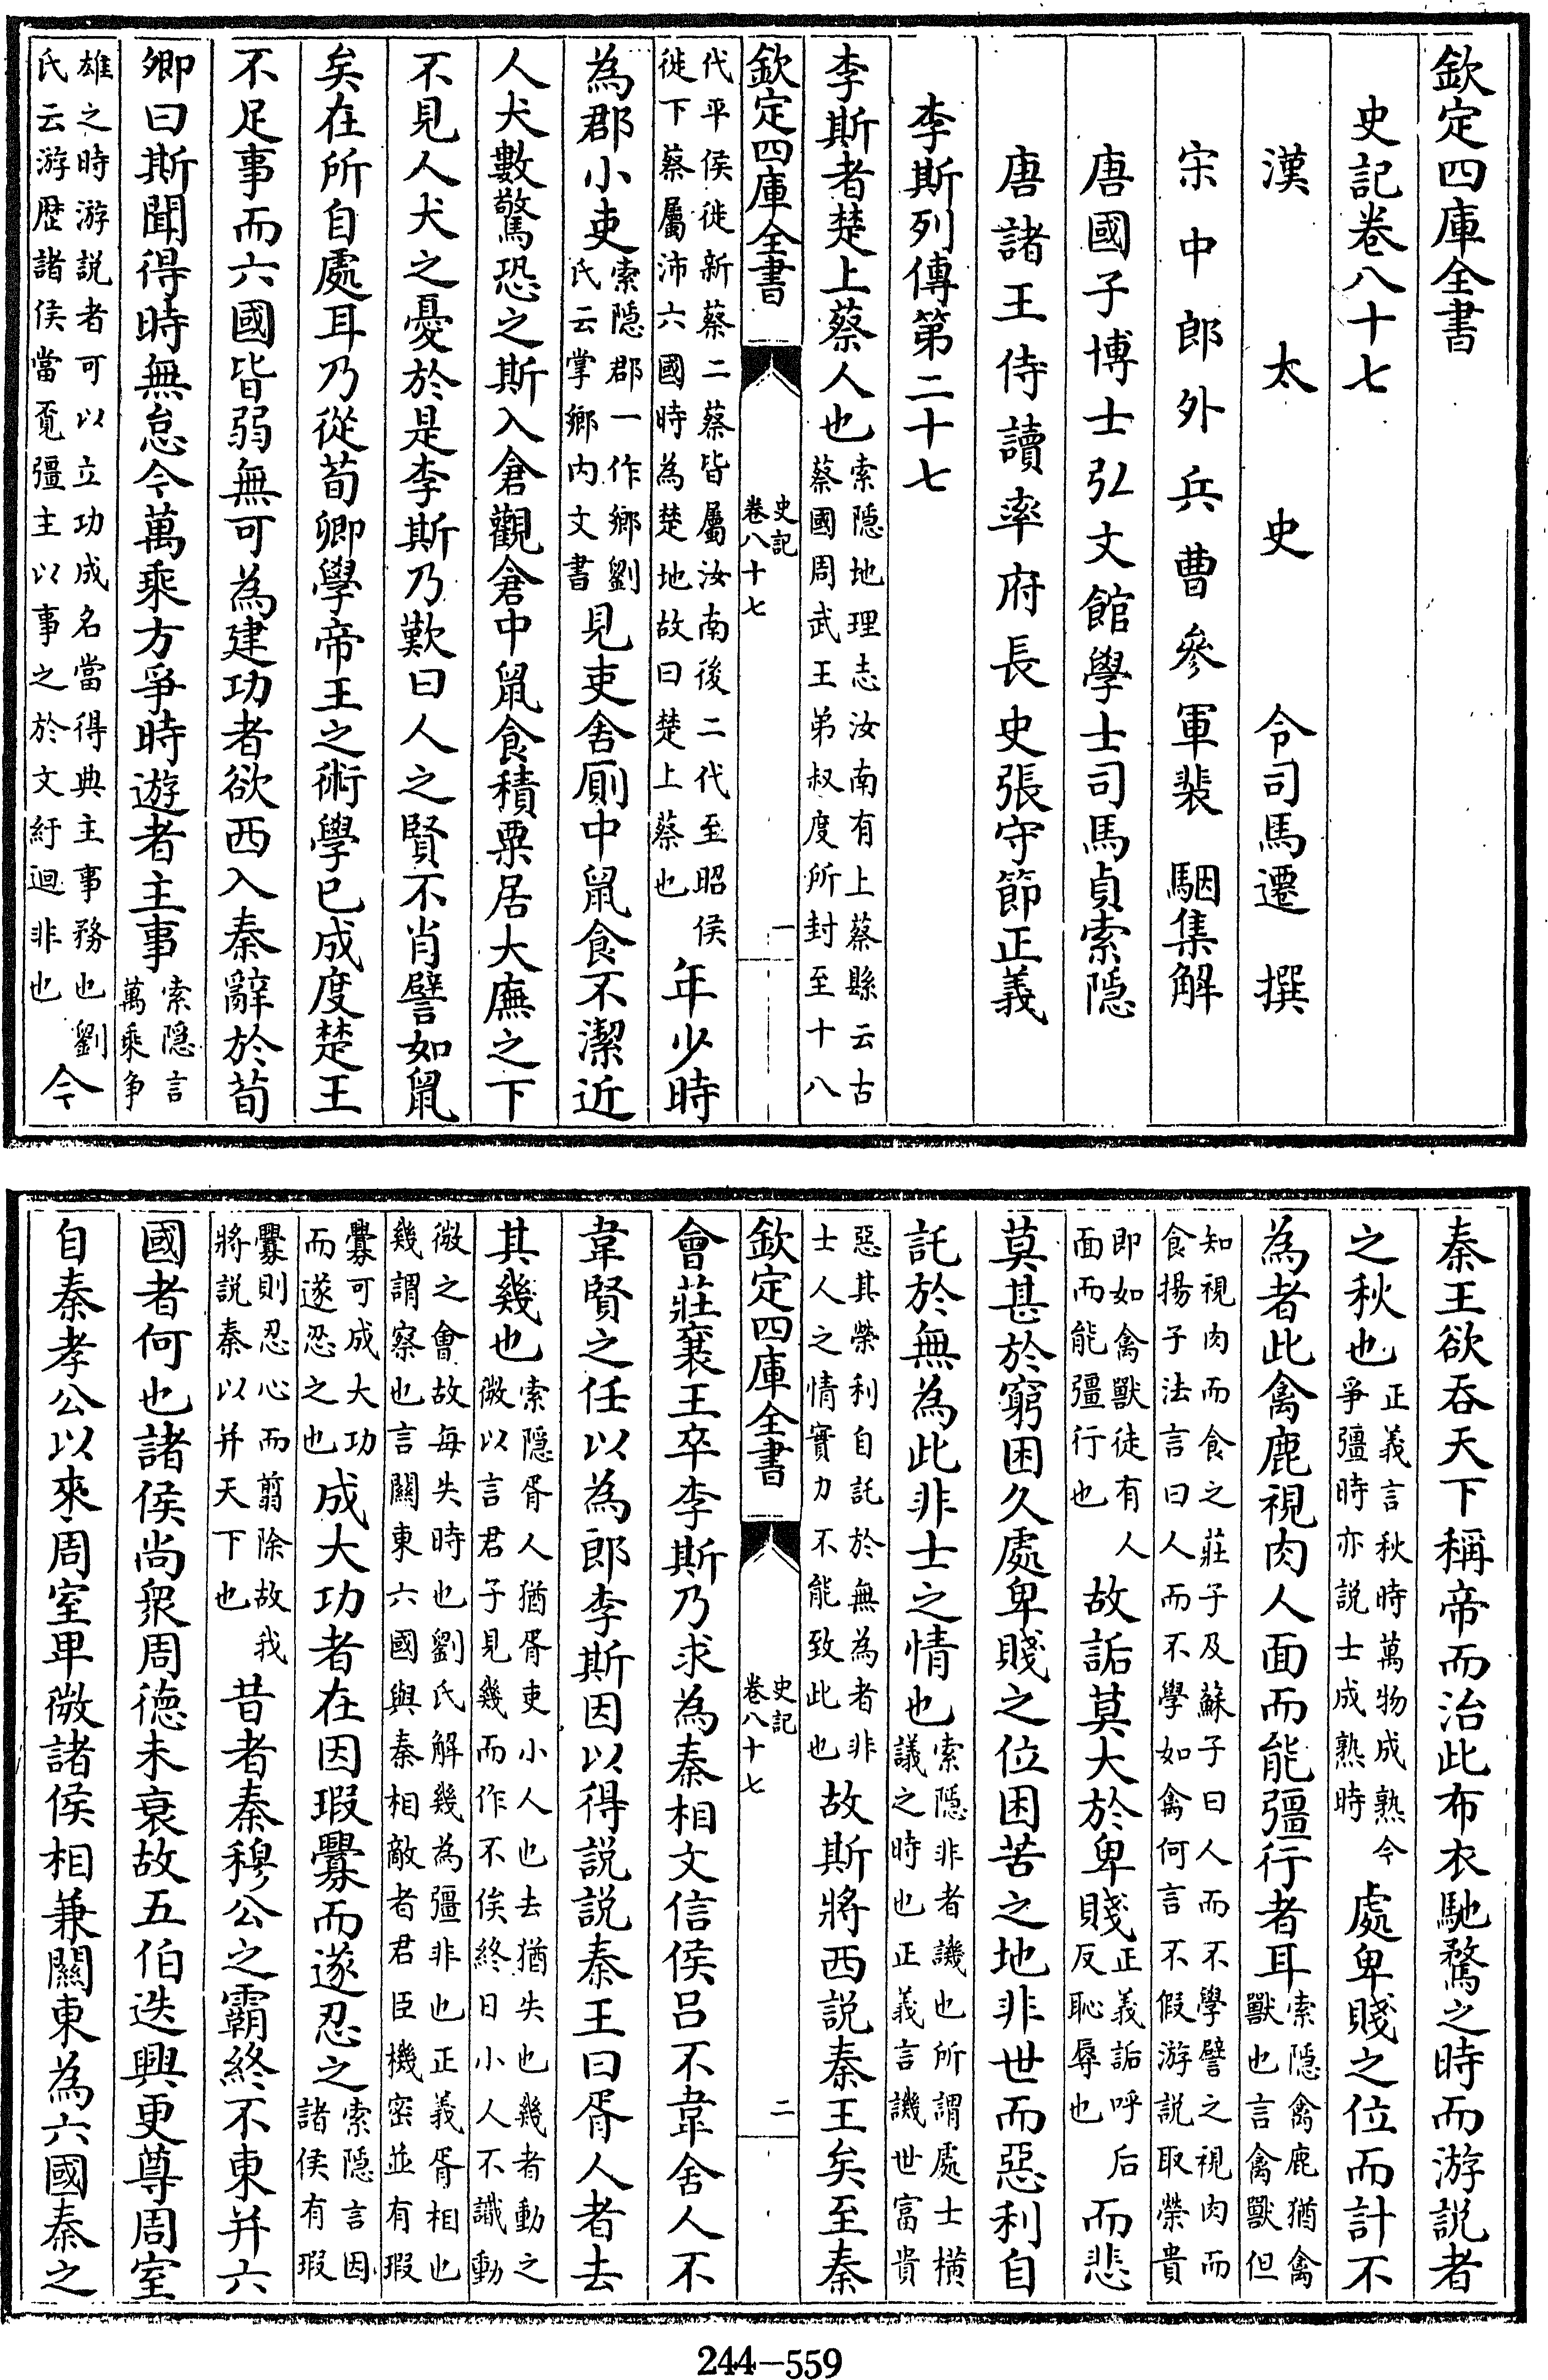 欽定四庫全書
史記卷八十七
漢太史令司馬遷撰
宋中郎外兵曹參軍裴駰集解
唐國子博士弘文館學士司馬貞索隱
唐諸王侍讀率府長史張守節正義
李斯列傳第二十七
李斯者楚上蔡人也索隱地理志汝南有上蔡縣云古蔡國周武王弟叔度所封至十八
欽定四庫全書 史記卷八十七 一
代平侯徙新蔡二蔡皆屬汝南後二代至昭侯徙下蔡屬沛六國時為楚地故曰楚上蔡也年少時
為郡小吏索隱郡一作鄉劉氏云掌鄉內文書見吏舍廁中鼠食不潔近
人犬數驚恐之斯入倉觀倉中鼠食積粟居大廡之下
不見人犬之憂於是李斯乃歎曰人之賢不肖譬如鼠
矣在所自處耳乃從荀卿學帝王之術學已成度楚王
不足事而六國皆弱無可為建功者欲西入秦辭於荀
卿曰斯聞得時無怠今萬乘方爭時遊者主事索隱言萬乘爭
雄之時游說者可以立功成名當得典主事務也劉氏云游歷諸侯當覓彊主以事之於文紆迴非也今
秦王欲吞天下稱帝而治此布衣馳騖之時而游說者
之秋也正義言秋時萬物成熟今爭彊時亦說士成熟時處卑賤之位而計不
為者此禽鹿視肉人面而能彊行者耳索隱禽鹿猶禽獸也言禽獸但
知視肉而食之莊子及蘇子曰人而不學譬之視肉而食揚子法言曰人而不學如禽何言不假游說取榮貴
即如禽獸徒有人面而能彊行也故詬莫大於卑賤正義詬呼后反恥辱也而悲
莫甚於窮困久處卑賤之位困苦之地非世而惡利自
託於無為此非士之情也索隱非者譏也所謂處士橫議之時也正義言譏世富貴
惡其榮利自託於無為者非士人之情實力不能致此也故斯將西說秦王矣至秦
欽定四庫全書 史記卷八十七 二
會莊襄王卒李斯乃求為秦相文信侯呂不韋舍人不
韋賢之任以為郎李斯因以得說說秦王曰胥人者去
其幾也索隱胥人猶胥吏小人也去猶失也幾者動之微以言君子見幾而作不俟終日小人不識動
微之會故每失時也劉氏解幾為彊非也正義胥相也幾謂察也言關東六國與秦相敵者君臣機密並有瑕
釁可成大功而遂忍之也成大功者在因瑕釁而遂忍之索隱言因諸侯有瑕
釁則忍心而翦除故我將說秦以并天下也昔者秦穆公之霸終不東并六
國者何也諸侯尚衆周德未衰故五伯迭興更尊周室
自秦孝公以來周室卑微諸侯相兼關東為六國秦之
244-559